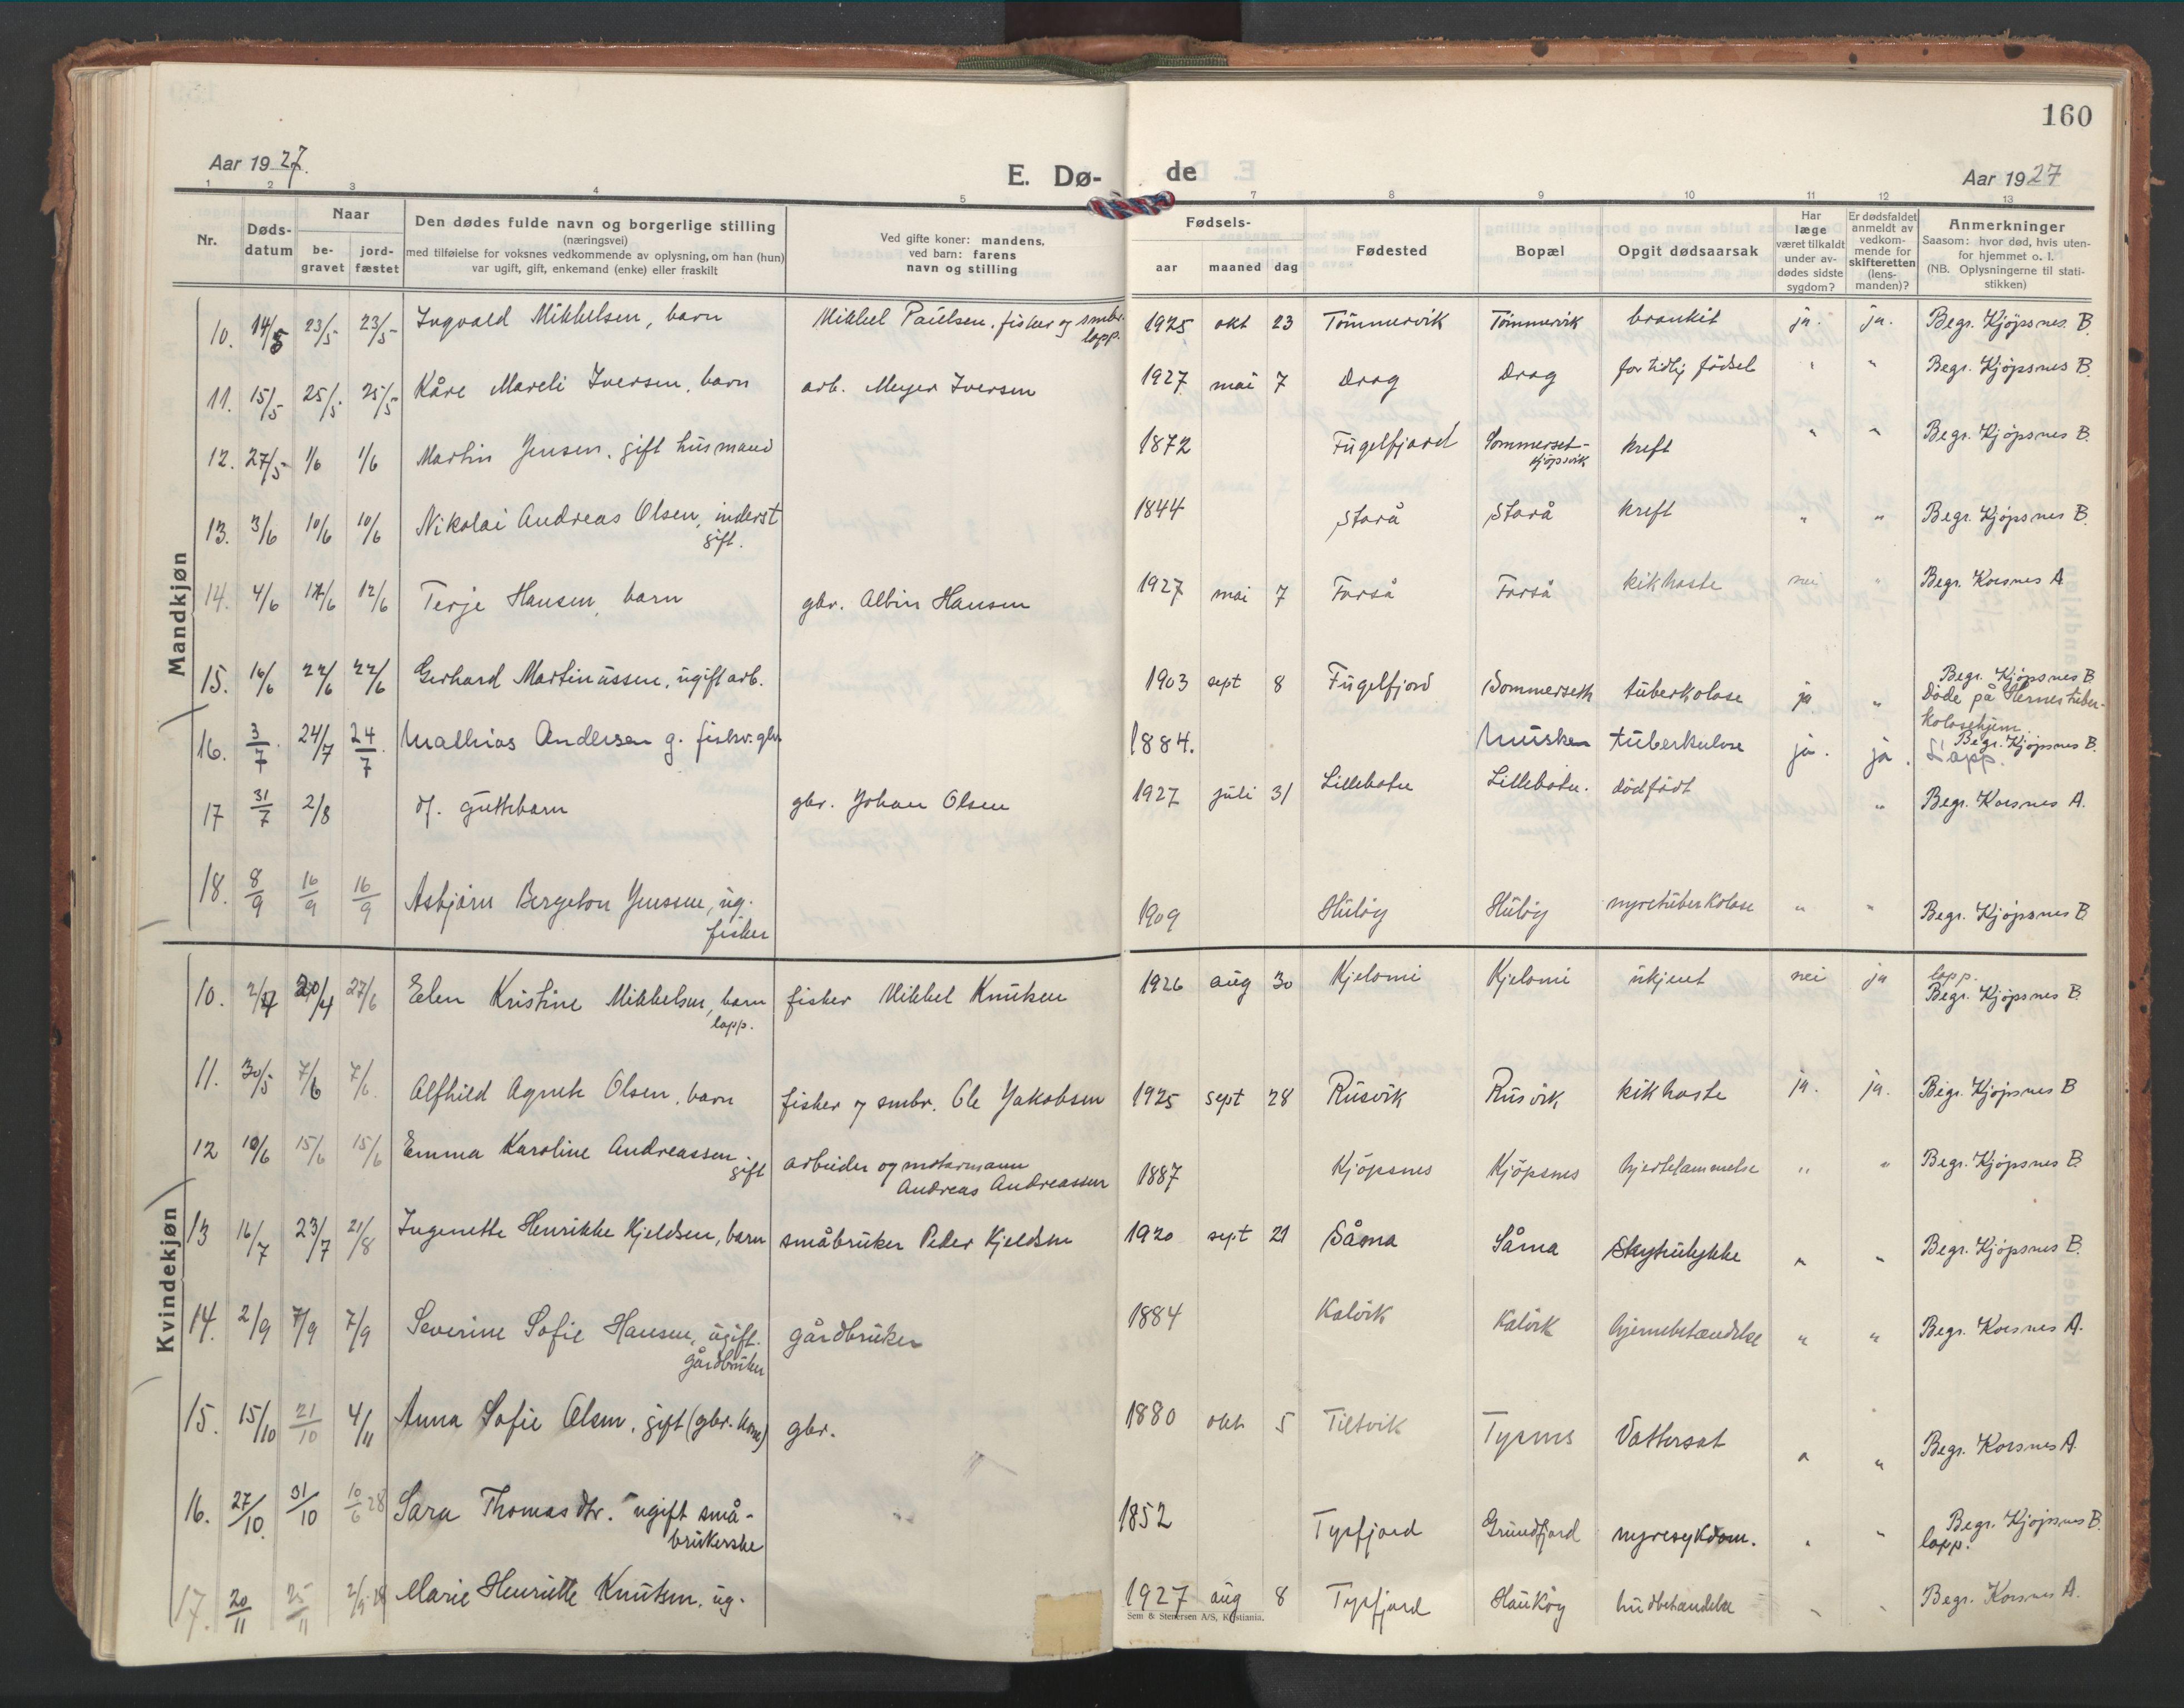 160
Aar 1927.
E. Dø-
de
Aar 1927
1 2 3 4 5 7 8 9 10 11 12 13
Nr.
Døds-
datum
Naar
be-
gravet
jord-
fæstet
Den dødes fulde navn og borgerlige stilling
(næringsvei)
med tilføielse for voksnes vedkommende av oplysning, om han (hun)
var ugift, gift, enkemand (enke) eller fraskilt
Ved gifte koner: mandens,
ved barn: farens
navn og stilling
Fødsels-
aar maaned dag
Fødested
Bopæl
Opgit dødsaarsak
Har
læge
været tilkaldt
under av-
dødes sidste
sygdom?
Er dødsfaldet
anmeldt av
vedkom-
mende for
skifteretten
(lens-
manden)?
Anmerkninger
Saasom: hvor død, hvis uten-
for hjemmet o. l.
(NB. Oplysningerne til stati-
stikken)
Mandkjøn
10. 14/5 23/5 23/5 Ingvald Mikkelsen, barn Mikkel Paulsen, fisker og smbr. lapp. 1925 okt 23 Tømmervik Tømmervik bronkit ja. ja. Begr. Kjøpsnes B.
11. 15/5 25/5 25/5 Kåre Mareli Iversen, barn arb. Meyer Iversen 1927 mai 7 Drag Drag for tidlig fødsel " " Begr. Kjøpsnes B.
12. 27/5 1/6 1/6 Martin Jensen, gift husmand 1872 Fugelfjord Sommerset-
Kjøpsvik kreft " " Begr. Kjøpsnes B.
13. 3/6 10/6 10/6 Nikolai Andreas Olsen, inderst
gift. 1844 Storå Storå kreft " " Begr. Kjøpsnes B.
14. 4/6 12/6 12/6 Terje Hansen, barn gbr. Albin Hansen 1927 mai 7 Forså Forså kikhoste nei " Begr. Korsnes A
15. 16/6 22/6 22/6 Gerhard Martinussen, ugift arb. 1903 sept 8 Fugelfjord Sommerseth tuberkolose ja " Begr. Kjøpsnes B
Døde på Sternes tuber-
kolosehjem.
16. 3/7 24/7 24/7 Mathias Andersen g. fisker. gbr. 1884. Musken tuberkulose ja. ja. Begr. Kjøpsnes B.
Lapp.
17 31/7 2/8 df. guttebarn gbr. Johan Olsen 1927 juli 31 Lillebotn Lillebotn. dødfødt " Begr. Korsnes A.
18. 8/9 16/9 16/9 Asbjørn Bergeton Jenssen, ug.
fisker 1909 Huløy Huløy nyretuberkolose " " Begr. Kjøpsnes B
Kvindekjøn
10. 2/4 20/4 27/6 Elen Kristine Mikkelsen, barn
lapp. fisker Mikkel Knutsen 1926 aug 30 Kjelomi Kjelomi ukjent nei ja lapp.
Begr. Kjøpsnes B.
11. 30/5 7/6 7/6. Alfhild Agnete Olsen, barn fisker og smbr. Ole Jakobsen 1925 sept 28 Rusvik Rusvik kikhoste ja. ja. Begr. Kjøpsnes B
12 10/6 15/6 15/6 Emma Karoline Andreassen
gift arbeider og motormann
Andreas Andreassen 1887 Kjøpsnes Kjøpsnes hjertelammelse " " Begr. Kjøpsnes B.
13 16/7 23/7 21/8 Ingenette Henrikke Kjeldsen, barn småbruker Peder Kjeldsen 1920 sept 21 Såma Såma Skyteulykke " " Begr. Kjøpsnes B.
14. 2/9 7/9 7/9 Severine Sofie Hansen, ugift.
gårdbruker gårdbruker 1884 Kalvik Kalvik hjernebetændelse " " Begr. Korsnes A.
15. 15/10 21/10 4/11 Anna Sofie Olsen, gift (gbr. kone) gbr. 1880 okt 5 Tiltvik Tysnes Vattersot " " Begr. Korsnes A.
16. 27/10. 31/10 10/6 28 Sara Thomasdtr. ugift små-
brukerske 1852 Tysfjord Grundfjord nyresykdom. " " Begr. Kjøpsnes B.
lapp.
17. 20/11 25/11 Marie Henriette Knutsen, ug. 1927 aug 8 Tysfjord Haukøy hudbetændelse " " Begr. Korsnes A.
Sem & Stenersen A/S, Kristiania.